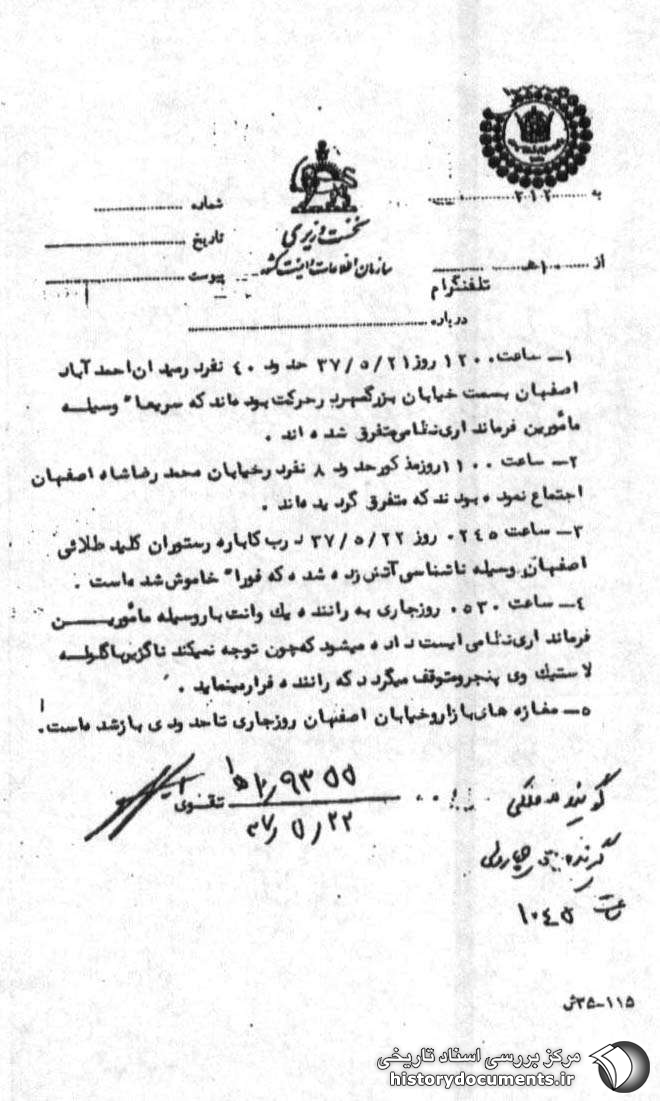 به ۳۱۲
شماره
نخست وزیری
تاریخ
سازمان اطلاعات و امنیت کشور
از ۱۰هـ
پیوست
تلفنگرام
درباره
۱ــ ساعت ۱۲۰۰ روز ۳۷/۵/۲۱ حدود ۴۰ نفر در میدان احمد آباد
اصفهان بسمت خیابان بزرگمهر در حرکت بوده‌اند که سریعاً وسیلــه
مأمورین فرمانداری نظامی متفرق شده اند .
۲ــ ساعت ۱۱۰۰ روز مذکور حدود ۸ نفر در خیابان محمد رضا شاه اصفهان
اجتماع نموده بودند که متفرق گردیده‌اند .
۳ــ ساعت ۰۲۴۵ روز ۳۷/۵/۲۲ درب کاباره رستوران کلید طلائی
اصفهان وسیله ناشناسی آتش زده شده که فوراً خاموش شده‌است .
۴ــ ساعت ۰۵۳۰ روز جاری به راننده یک وانت بار وسیله مأموریــــن
فرمانداری نظامی ایست داده میشود که چون توجه نمیکند ناگزیر با گلولــه
لاستیک وی پنچر و متوقف میگردد که راننده فرار مینماید .
۵ــ مغازه های بازار و خیابان اصفهان روز جاری تا حدودی باز شده‌است .
گوینده ملکی
۱۰هـ۱/۹۳۵۵
تقوی
۳۷/۵/۲۲
گیرنده
ساعت ۱۰۴۵
۱۱۵-۳۵ش
مرکز بررسی اسناد تاریخی
historydocuments.ir